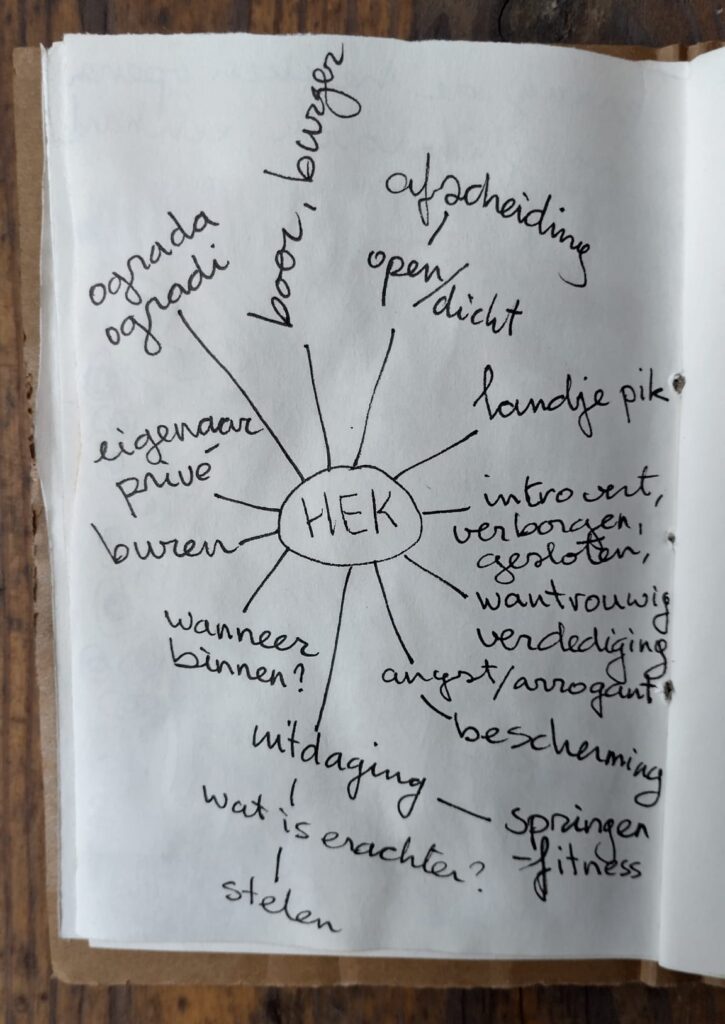 boor, burger
afscheiding
open/dicht
ograda
ogradi
landje pik
eigenaar
privé
HEK
introvert,
verborgen,
gesloten,
buren
wantrouwig
verdediging
wanneer
binnen?
angst/arrogant
bescherming
uitdaging
wat is erachter?
springen
-fitness
stelen